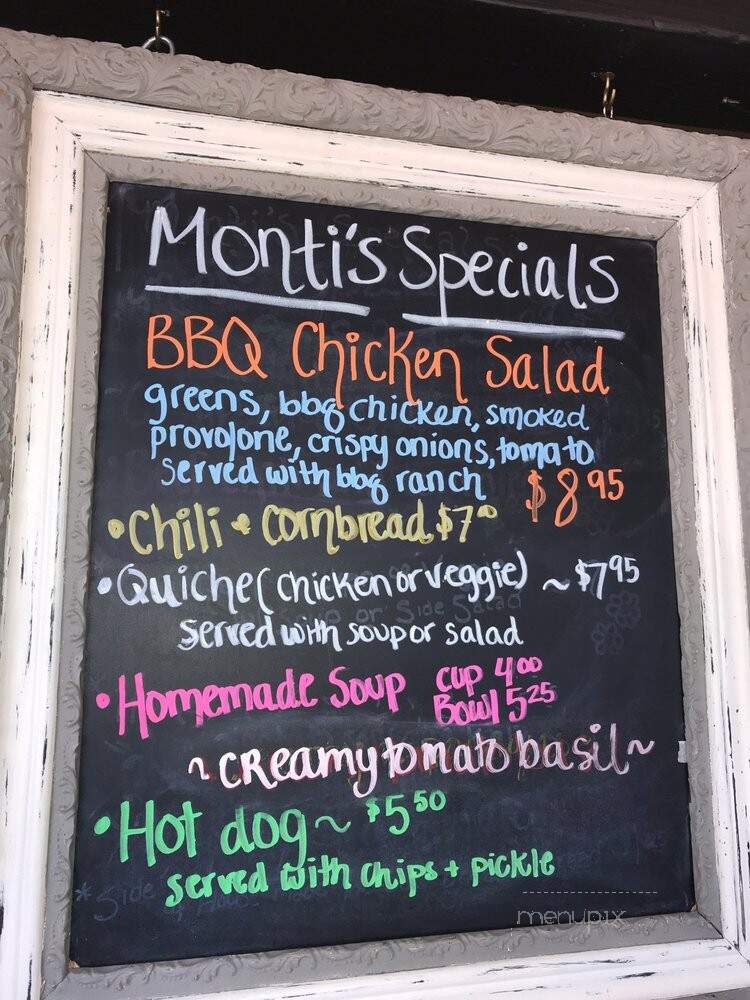 Monti's Specials
BBQ Chicken Salad
greens, bbq chicken, smoked
provolone, crispy onions, tomato
served with bbq ranch $8 95
•Chili + Cornbread $7 00
•Quiche (chicken or veggie) ~ $7 95
or Side Salad
served with soup or salad
•Homemade Soup cup 4 00
Bowl 5 25
~creamy tomato basil~
•Hot dog ~ $5 50
served with chips + pickle
*Side
menupix